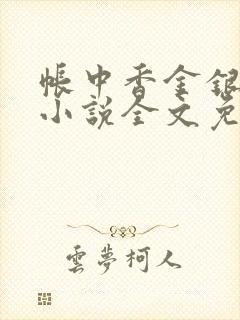 帳中香金銀
小說全文免
雲夢柯人